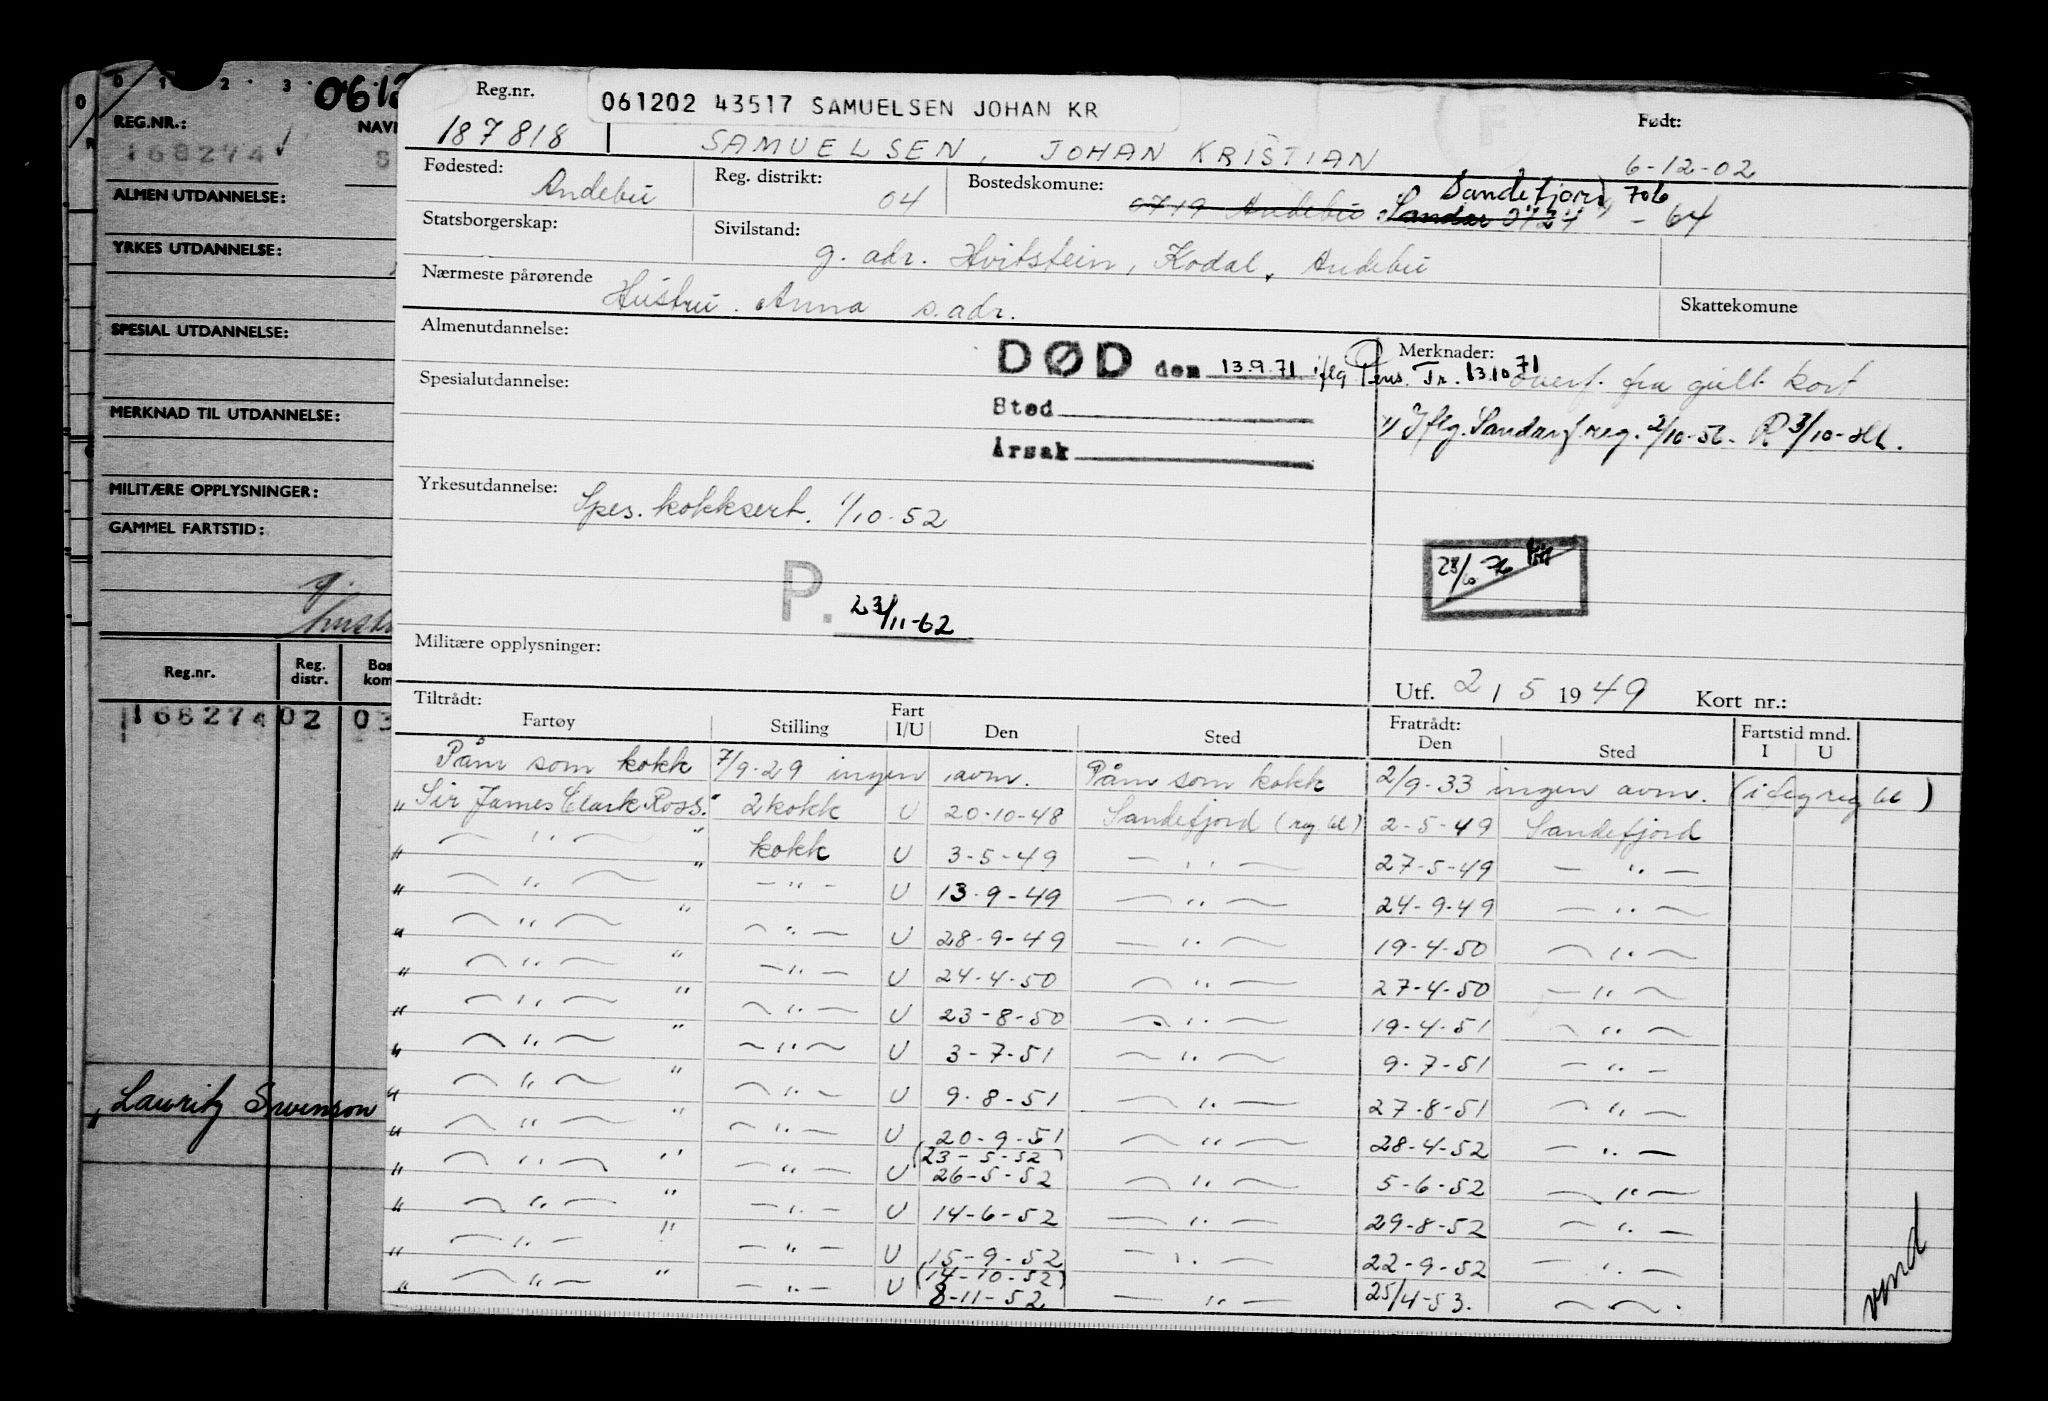 0 1 2 3 0612
REG.NR.: NAVN
168274
ALMEN UTDANNELSE:
YRKES UTDANNELSE:
SPESIAL UTDANNELSE:
MERKNAD TIL UTDANNELSE:
MILITÆRE OPPLYSNINGER:
GAMMEL FARTSTID:
g.
hustr
Reg.nr. Reg. distr. Bos kom
168274 02 03
Lauritz Swenson
Reg.nr. 061202 43517 SAMUELSEN JOHAN KR Født:
187818 SAMUELSEN, JOHAN KRISTIAN 6-12-02
Fødested: Andebu Reg. distrikt: 04 Bostedskommune: 0719 Andebu Sandar 0727 Sandefjord 706 - 64
Statsborgerskap: Sivilstand: g. adr. Hvitstein, Kodal, Andebu
Nærmeste pårørende Hustru. Anna s. adr. Skattekomune
Almenutdannelse:
DØD den 13.9.71 iflg Pens. Tr. 13.10 71
Merknader: overf. fra gult kort
Spesialutdannelse:
Sted
Årsak
1) Iflg. Sandar f reg. 2/10-56. R 3/10-
Yrkesutdannelse: Spes. kokksert. 1/10-52
P. 23/11-62
28/6 76
Militære opplysninger:
Utf. 2 / 5 1949 Kort nr.:
Tiltrådt: Fratrådt: Fartstid mnd.
Fartøy Stilling Fart I/U Den Sted Den Sted I U
Påm som kokk 7/9-29 ingen avm. Påm som kokk 2/9-33 ingen avm. (i flg reg bl)
" Sir James Clark Ross." 2kokk U 20-10-48 Sandefjord (reg bl) 2-5-49 Sandefjord
" — " — " kokk U 3-5-49 — " — 27-5-49 — " —
" — " — " — " — U 13-9-49 — " — 24-9-49 — " —
" — " — " — " — U 28-9-49 — " — 19-4-50 — " —
" — " — " — " — U 24-4-50 — " — 27-4-50 — " —
" — " — " — " — U 23-8-50 — " — 19-4-51 — " —
" — " — " — " — U 3-7-51 — " — 9-7-51 — " —
" — " — " — " — U 9-8-51 — " — 27-8-51 — " —
" — " — " — " — U 20-9-51 — " — 28-4-52 — " —
(23-5-52)
" — " — " — " — U 26-5-52 — " — 5-6-52 — " —
" — " — " — " — U 14-6-52 — " — 29-8-52 — " —
" — " — " — " — U 15-9-52 — " — 22-9-52 — " —
(14-10-52)
" — " — " — " — U 8-11-52 — " — 25/4-53. — " —
vend